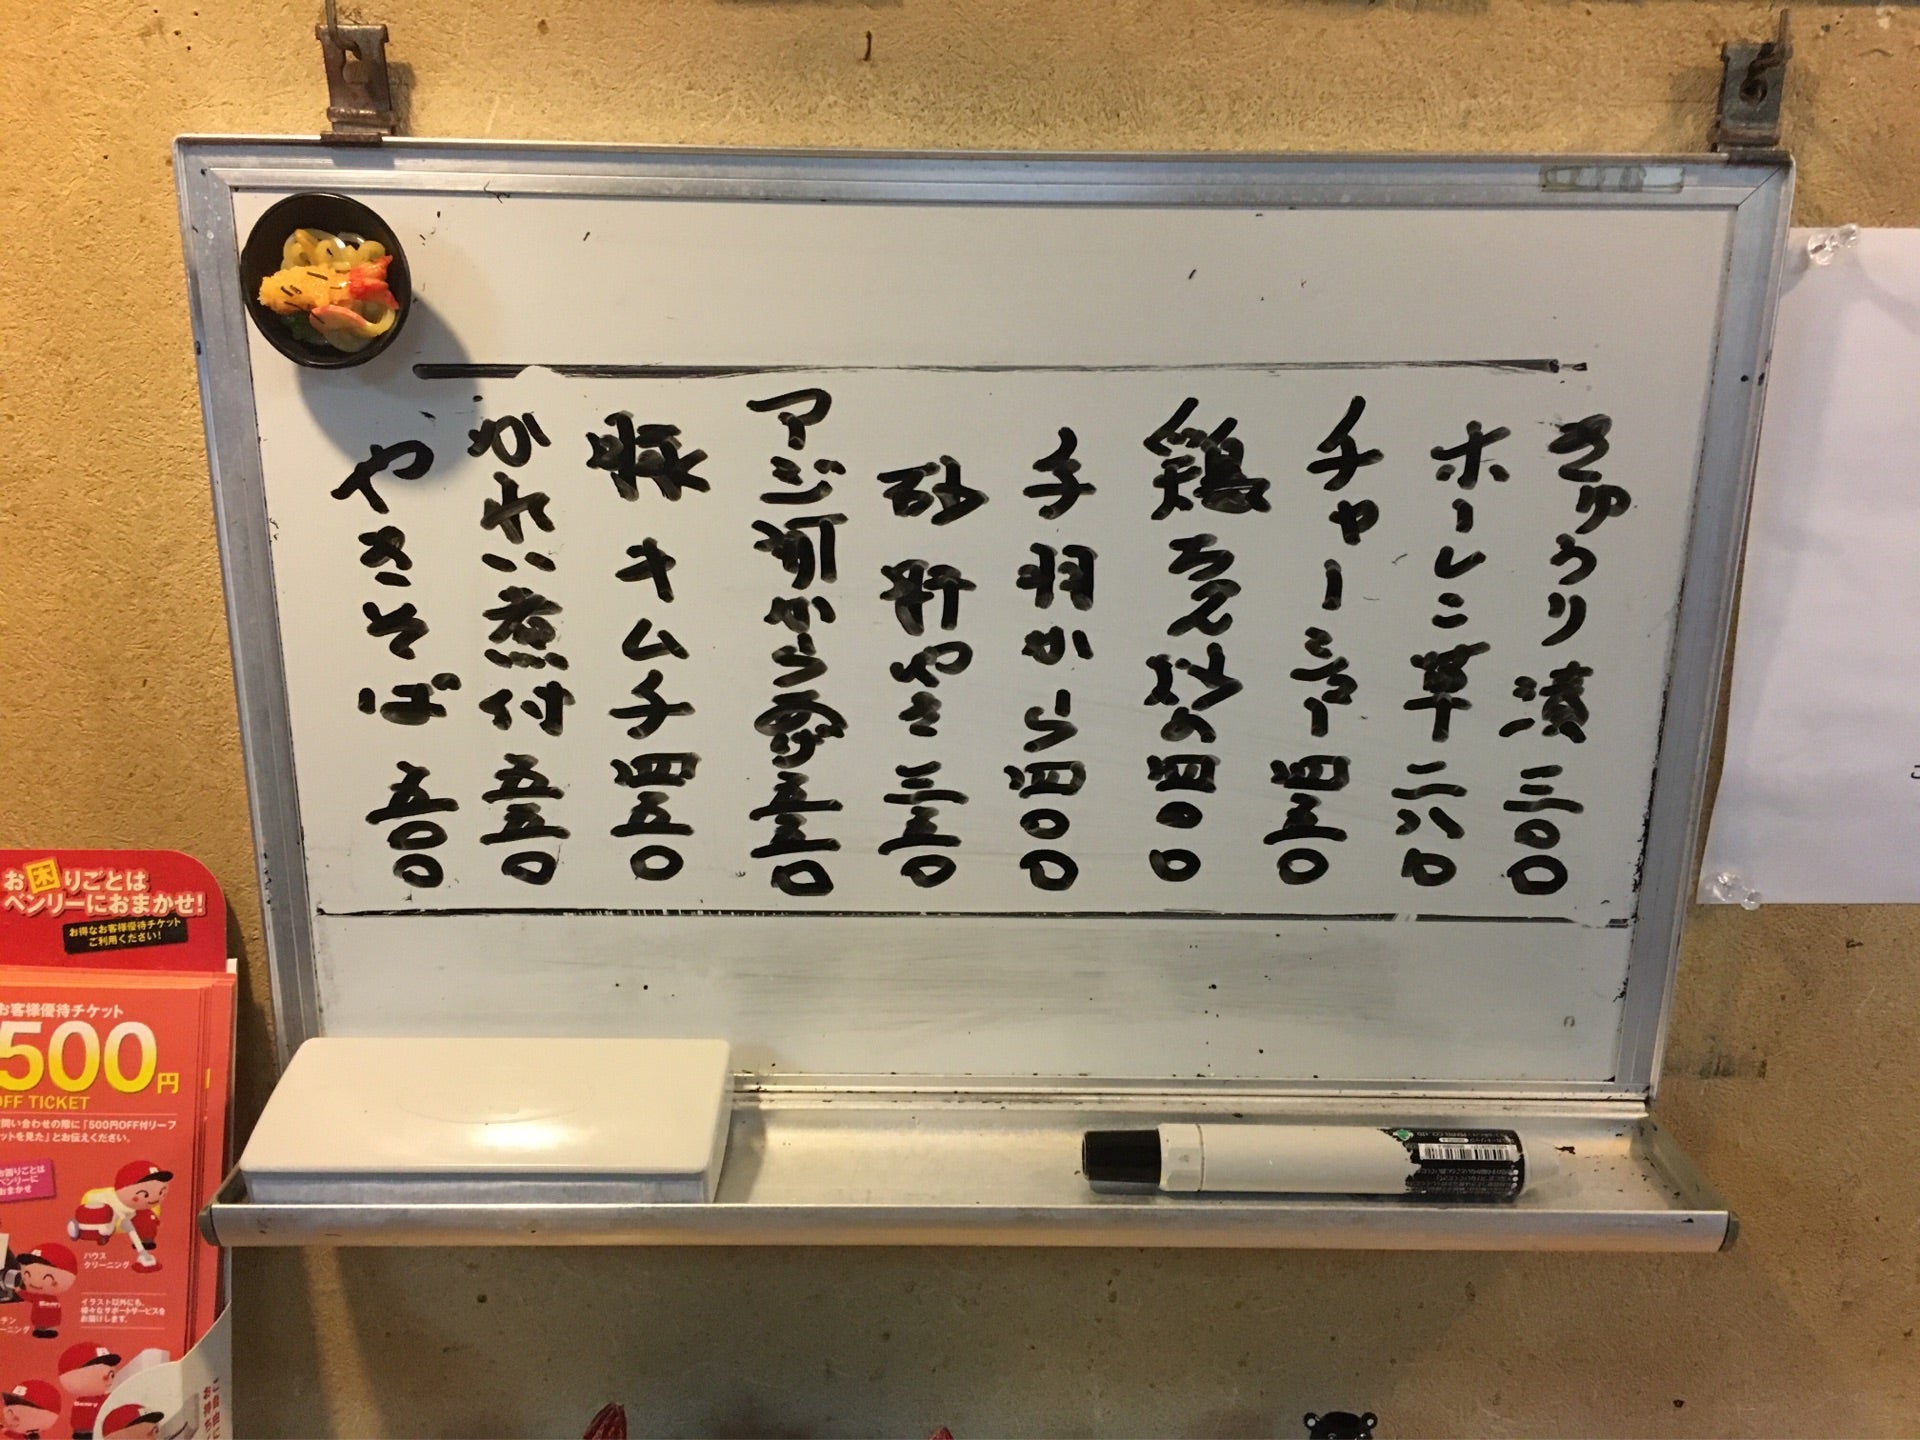 きゅうり漬 三〇〇
ホーレン草 二八〇
チャーシュー 四五〇
鶏ちん炒め 四〇〇
手羽から 四〇〇
砂肝やき 三五〇
アジ から揚 五五〇
豚キムチ 四五〇
かれい煮付 五五〇
やきそば 五〇〇
お困りごとは
ベンリーにおまかせ!
お得なお客様優待チケット
ご利用ください!
お客様優待チケット
500円
OFF TICKET
問い合わせの際に「500円OFF付リーフ
ットを見た」とお伝えください。
お困りごとは
ベンリーに
おまかせ
ハウス
クリーニング
イラスト以外にも、
様々なサポートサービスを
お届けします。